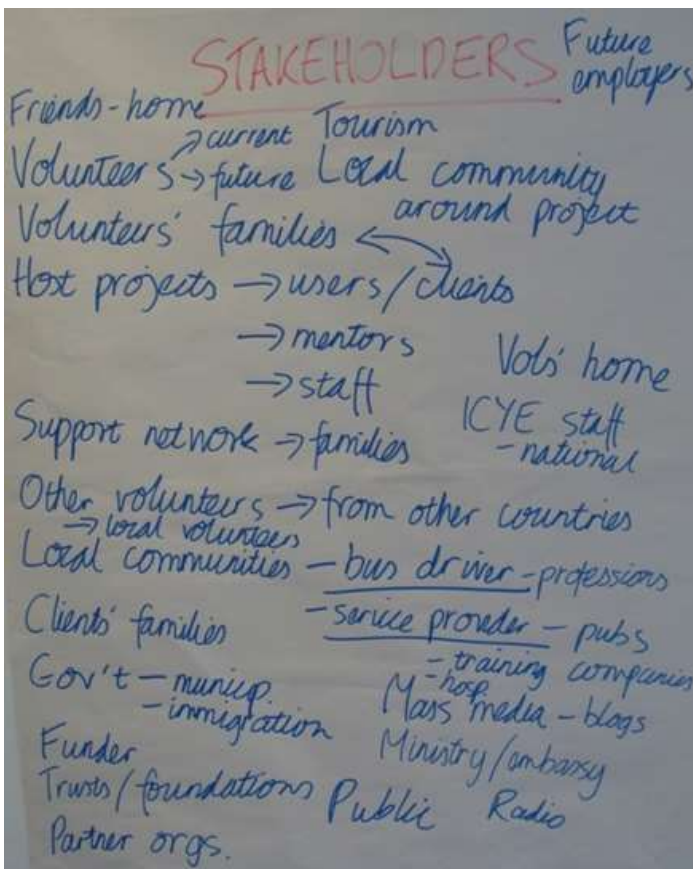 STAKEHOLDERS
Future
employers
Friends - home
→ current Tourism
Volunteers → future Local community
around project
Volunteers' families
Host projects → users/clients
→ mentors
→ staff
Vols' home
ICYE staff
- national
Support network → families
Other volunteers → from other countries
→ local volunteers
Local communities - bus driver - professions
- service provider - pubs
- training companies
- hosp.
Clients' families
Gov't - municip.
- immigration
Mass media - blogs
Ministry/embassy
Funder
Trusts/foundations Public Radio
Partner orgs.